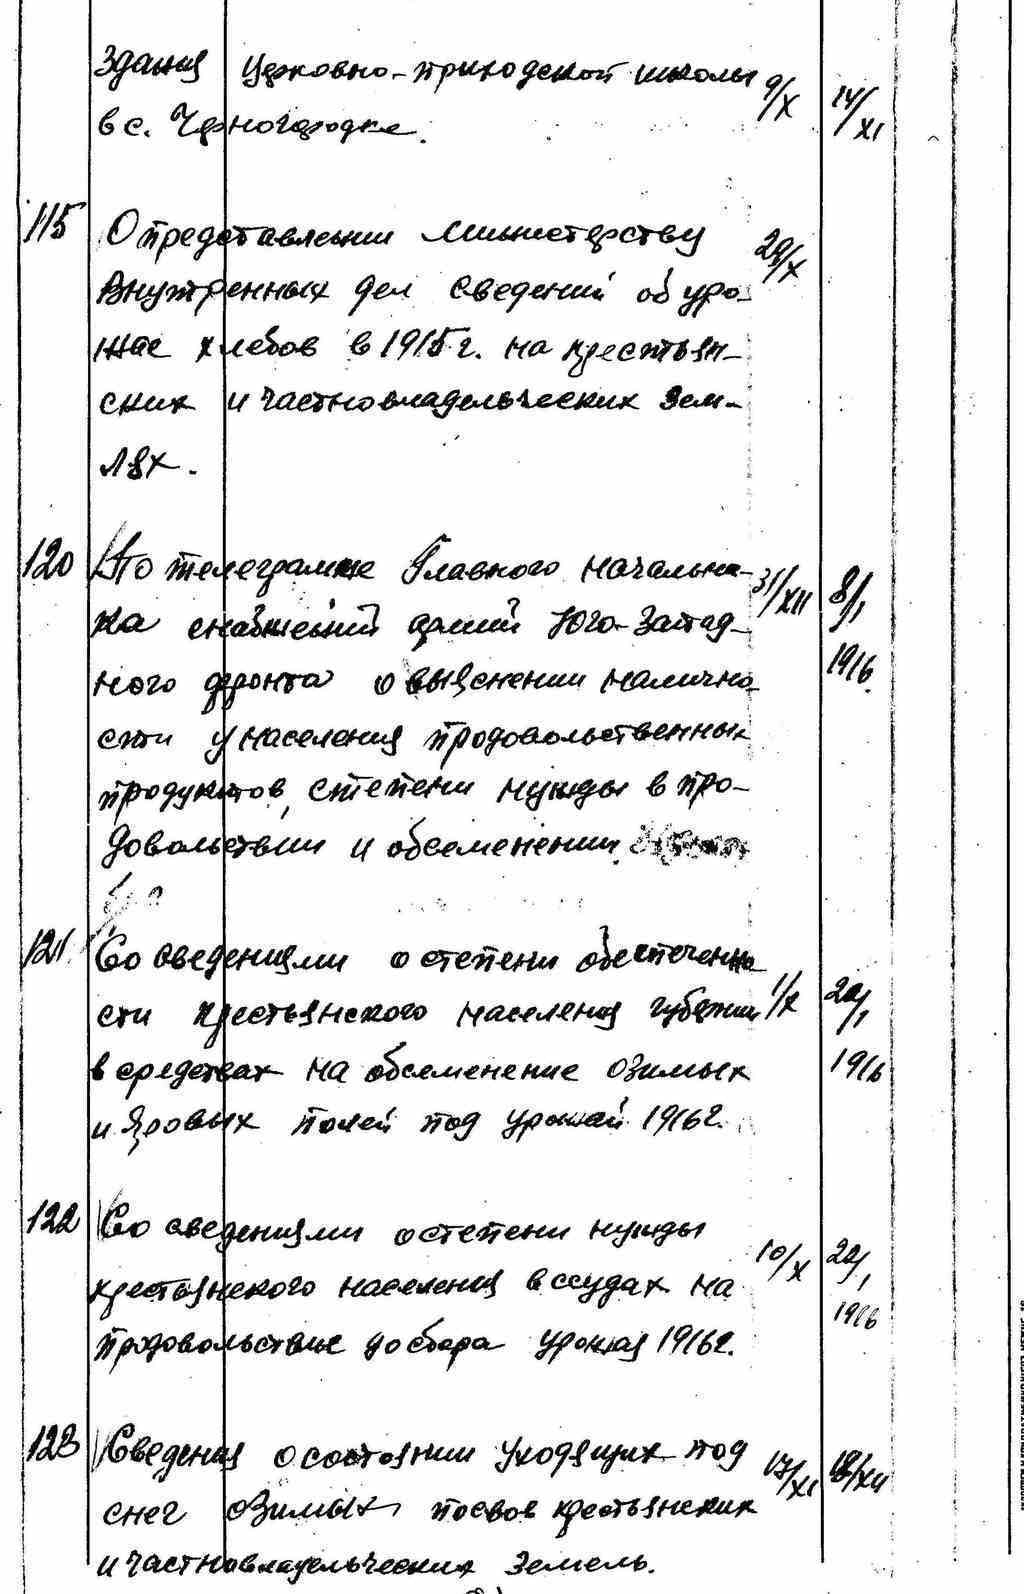 здания церковно-приходской школы 9/X 14/XI
в с. Черногородке.
115 О представлении Министерству 29/X
Внутренных дел сведений об уро-
жае хлебов в 1915 г. на крестьян-
ских и частновладельческих зем-
лях.
120 По телеграмме Главного начальни- 31/XII 8/I
ка снабжений армий Юго-Запад- 1916
ного фронта о выяснении налично-
сти у населения продовольственных
продуктов, степени нужды в про-
довольствии и обсеменении.
121. Со сведениями о степени обеспеченно
сти крестьянского населения губернии 1/X 20/I
в средствах на обсеменение озимых 1916
и яровых полей под урожай 1916 г.
122 Со сведениями о степени нужды
крестьянского населения в ссудах на 10/X 20/I
продовольствие до сбора урожая 1916 г. 1916
123 Сведения о состоянии уходящих под 17/XI 18/XII
снег озимых посевов крестьянских
и частновладельческих земель.